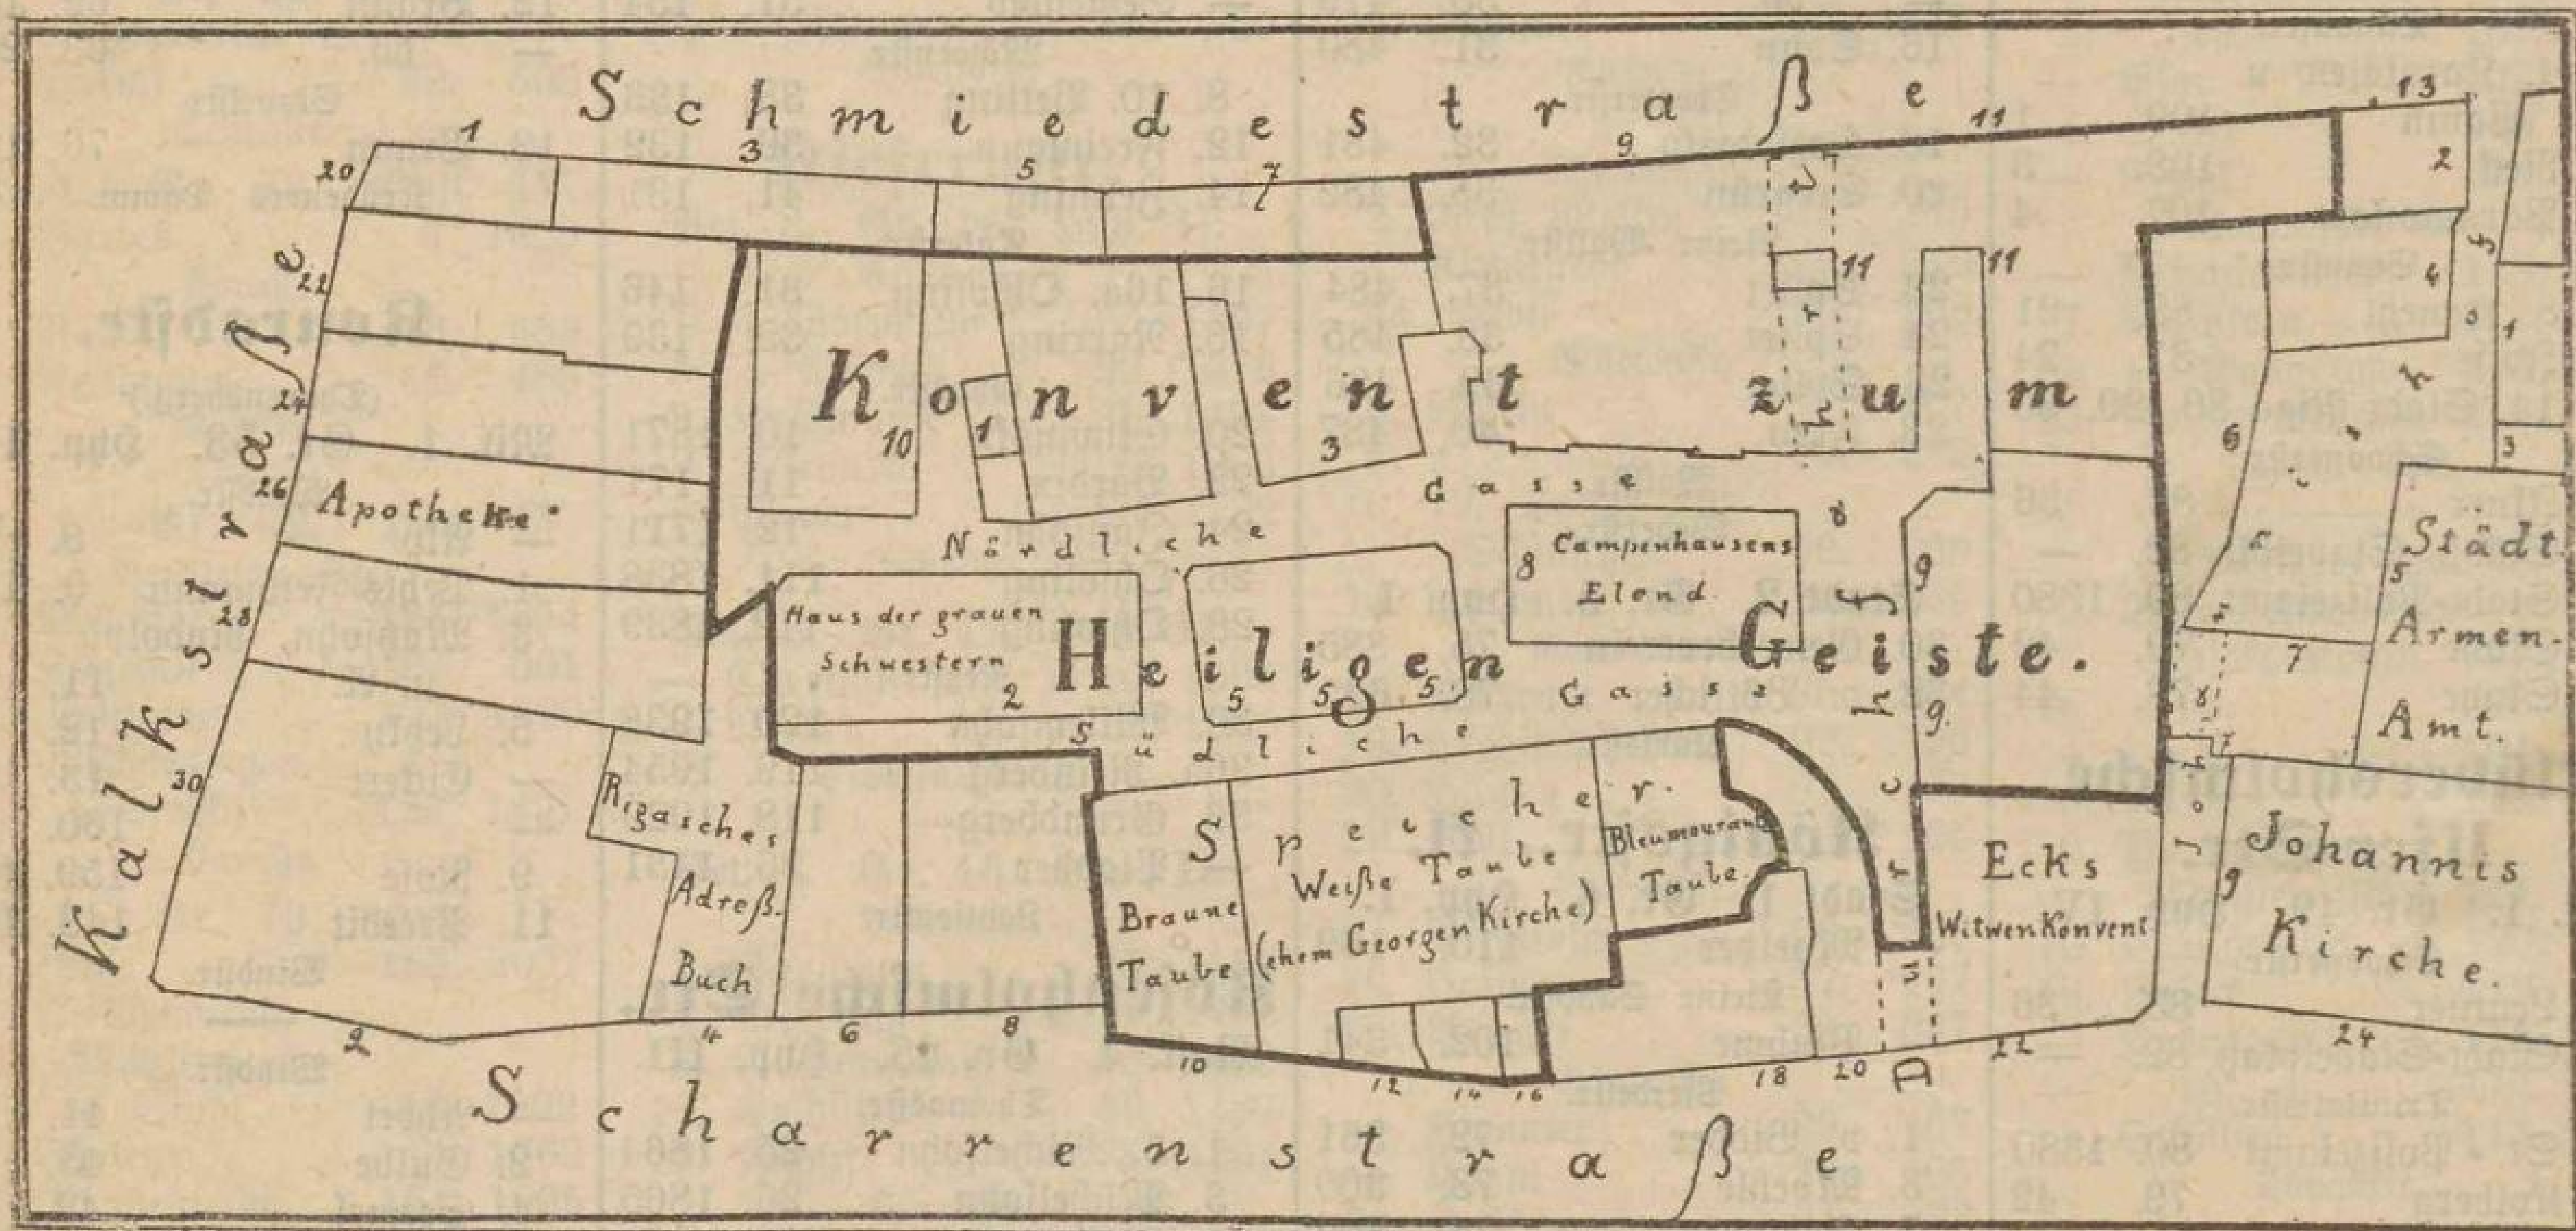 Schmiedestraße
1 3 5 7 9 11 13
20
22
24
26
28
30
Kalkstraße
Apotheke
Konvent zum
10 1 3 11 11
Nördliche Gasse
Haus der grauen
Schwestern
2
Heiligen Geiste.
5 5 5
8
Campenhausens
Elend
9
9.
Südliche Gasse
Durchhof
Rigasches
Adreß.
Buch
Speicher.
Braune
Taube
Weiße Taube
(ehem Georgen Kirche)
Bleumourant
Taube.
Ecks
Witwen Konvent
2
4
6
1
3
7
Städt.
5
Armen-
Amt.
Johannis
9
Kirche.
2 4 6 8 10 12 14 16 18 20 22 24
Scharrenstraße